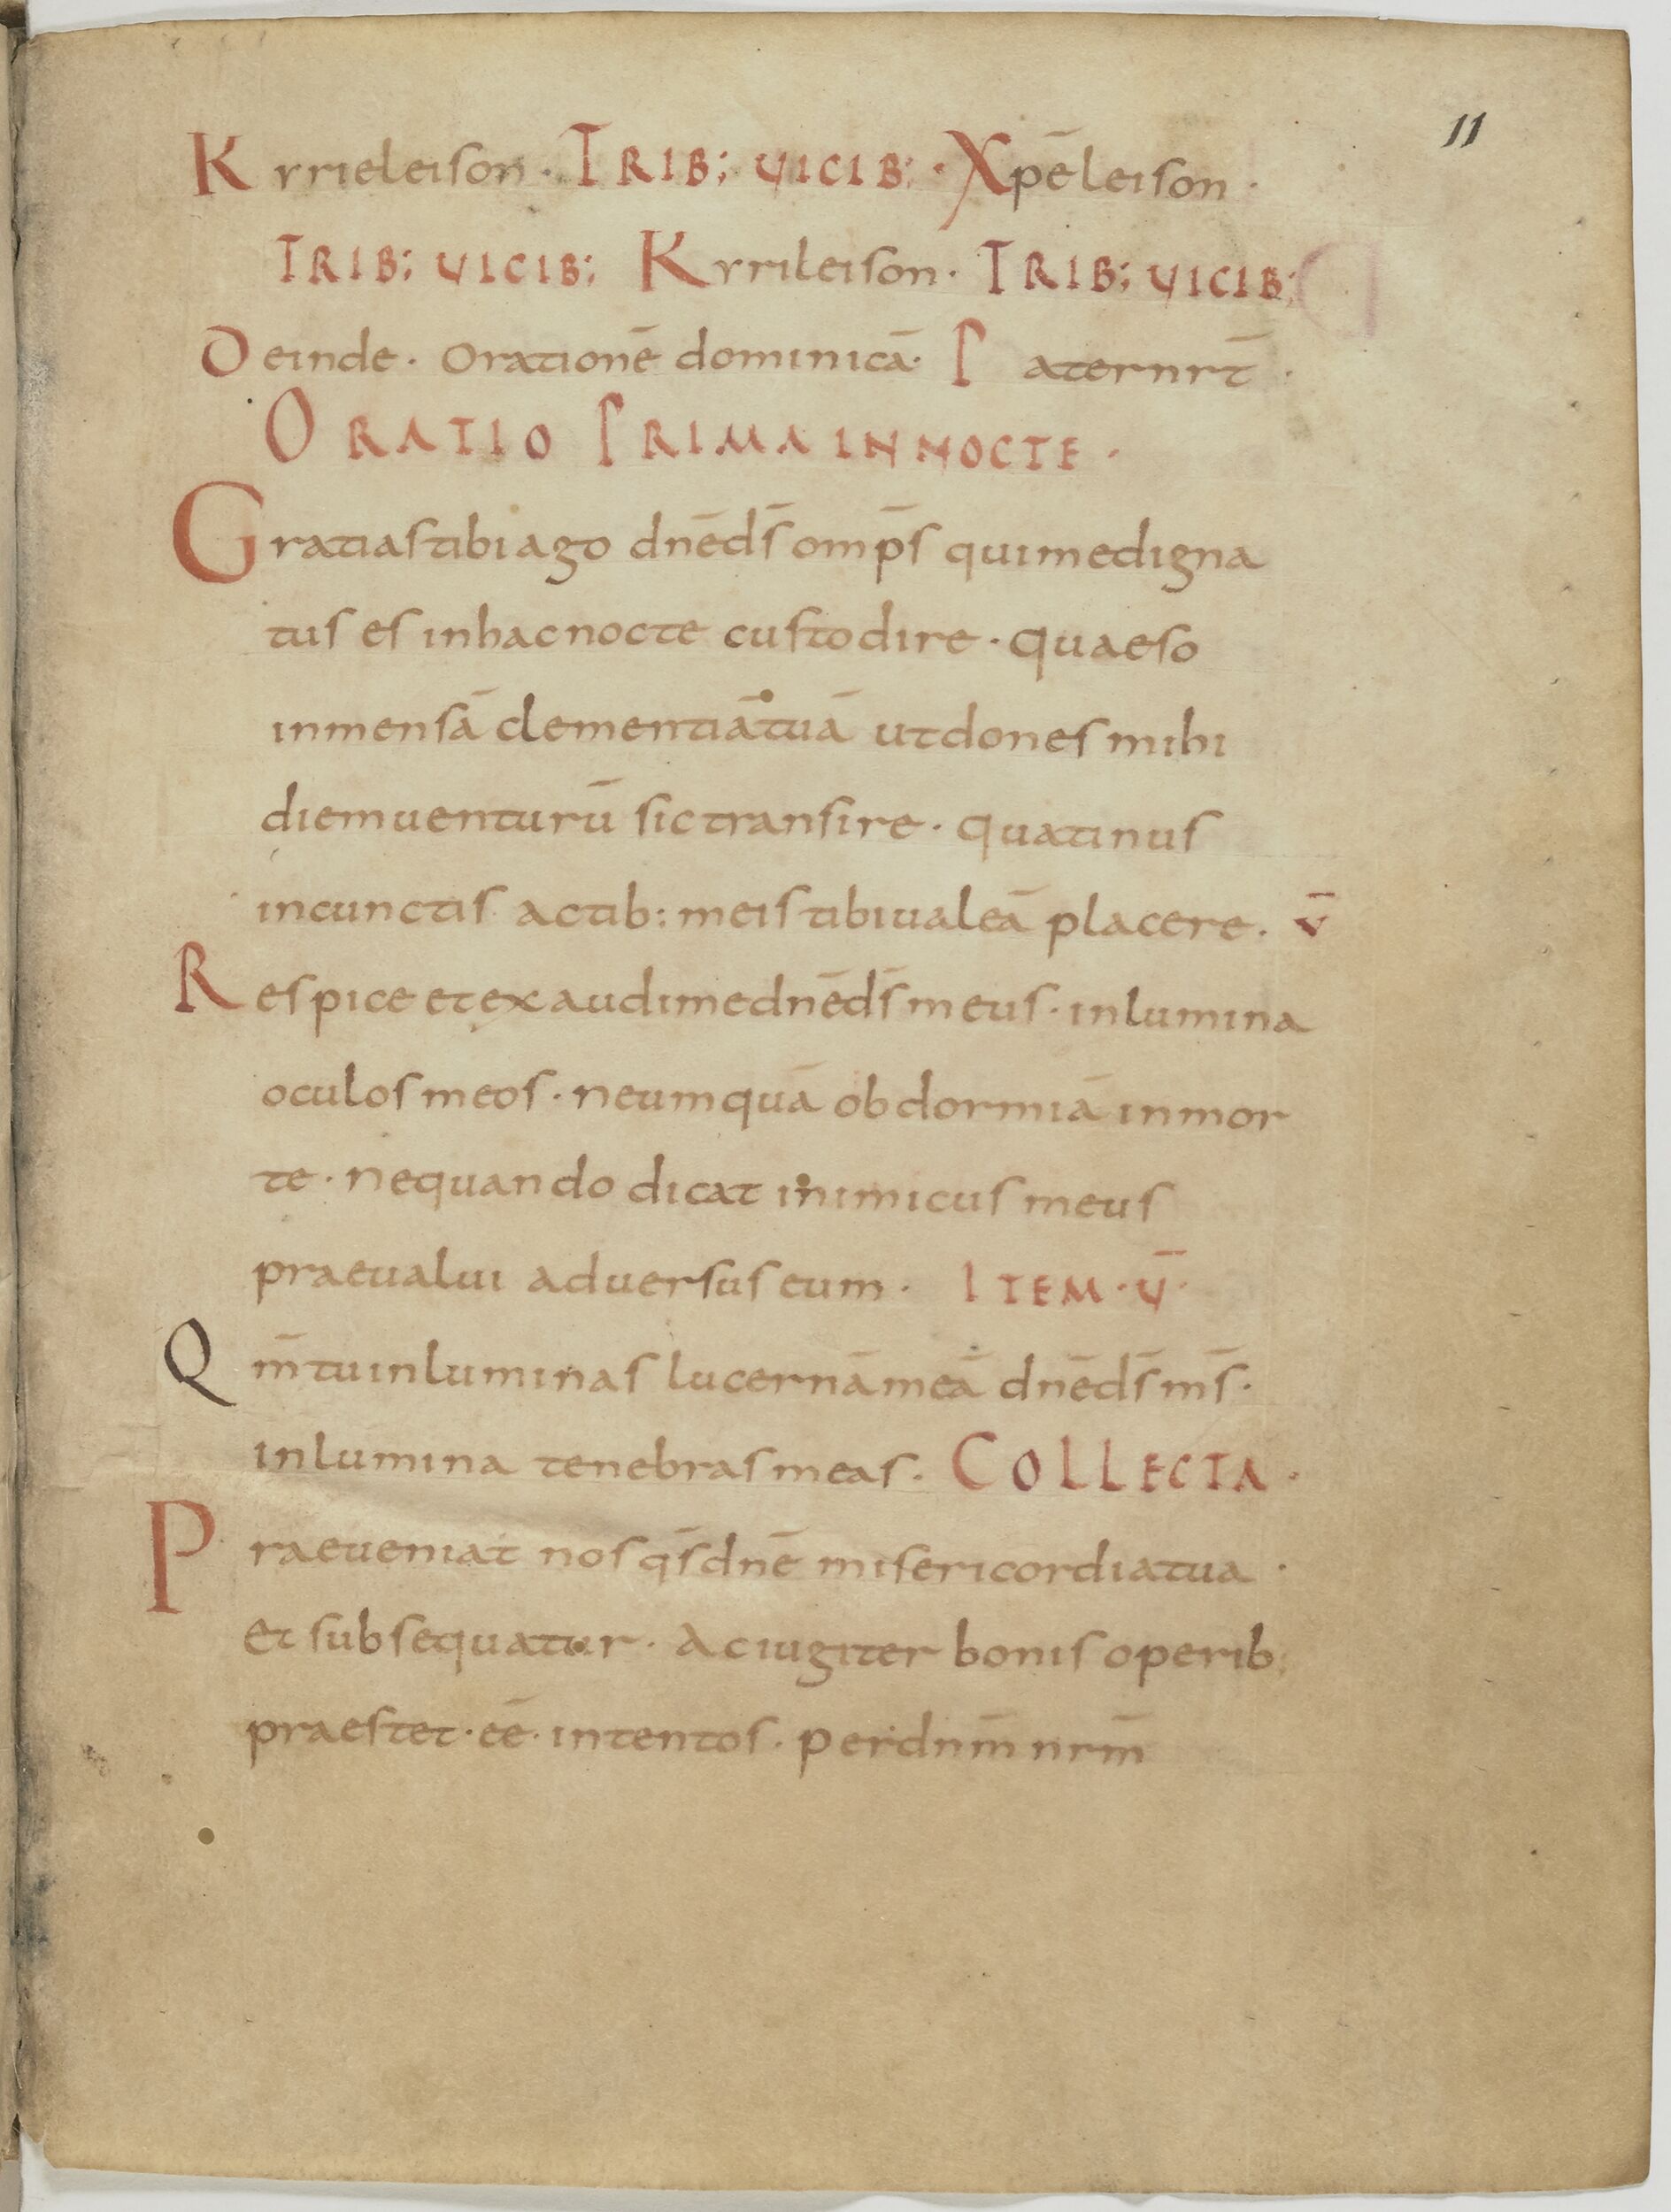 11
Kyrieleison · TRIB; VICIB; · Xpēleison ·
TRIB; VICIB; Kyrileison · TRIB; VICIB;
Deinde · Orationē dominicā · P aternrt̄ ·
ORATIO PRIMA IN NOCTE ·
Gratias tibi ago dn̄e ds̄ omp̄s qui me digna
tus es in hac nocte custodire · quaeso
inmensā clementiā tuā ut dones mihi
diem uenturū sic transire · quatinus
in cunctis actib; meis tibi ualeā placere · v̄
Respice et exaudi me dn̄e ds̄ meus · inlumina
oculos meos · ne umquā obdormiā in mor
te · nequando dicat inimicus meus
praeualui aduersus eum · ITEM · V̄ ·
Qm̄ tu inluminas lucernā meā dn̄e ds̄ ms̄ ·
inlumina tenebras meas · COLLECTA ·
Praeueniat nos qs̄ dn̄e misericordia tua ·
et subsequatur · Ac iugiter bonis operib;
praestet · eē · intentos · per dnm̄ nrm̄